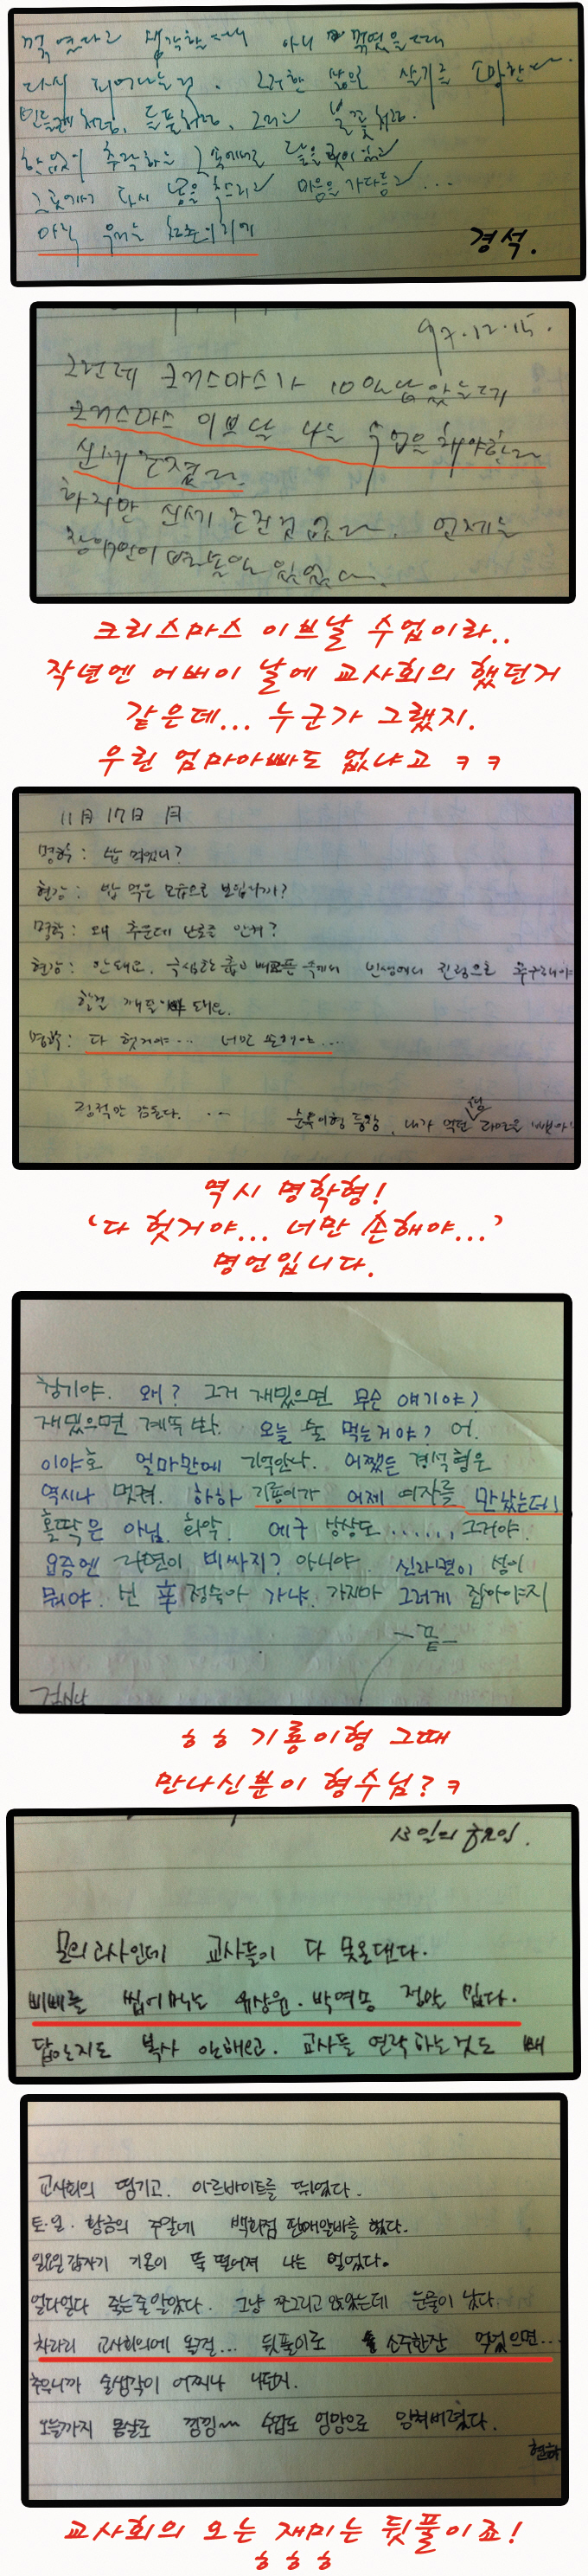 꺾였다고 생각할 때 아니 꺾였을 때
다시 피어나는 그러한 삶을 살기를 소망한다.
민들레처럼, 들풀처럼, 그리고 별꽃처럼.
한없이 추락하는 그 속에서도 닿을 곳이 있고
그곳에서 다시 몸을 추스리고 마음을 가다듬고...
아직 우리는 청춘이기에
경석.
97.12.15.
그런데 크리스마스가 10일 남았는데
크리스마스 이브날 나는 수업을 해야한다
신세 조졌다.
하지만 신세 조진것 없다. 언제는
창아간이 별볼일 있었나.
크리스마스 이브날 수업이라..
작년엔 어버이 날에 교사회의 했던거
같은데... 누군가 그랬지.
우린 엄마아빠도 없냐고 ㅋㅋ
11月 17日 月
명학: 밥 먹었니?
현강: 밥 먹은 모습으로 보입니까?
명학: 왜 추운데 난로를 안켜?
현강: 안돼요. 극심한 춥고 배고픈 속에서 인생에서 진정으로 추구해야
할걸 깨달아야 돼요.
명학: 다 헛거야... 너만 손해야...
정적만 감돈다. ...
순록이형 등장. 내가 먹던 생 라면을 빼아
역시 명학형!
'다 헛거야... 너만 손해야...'
명언입니다.
창기야. 왜? 그거 재밌으면 무슨 얘기야?
재밌으면 계속 봐. 오늘 술 먹는거야? 어.
이야호 얼마만에 기억안나. 어쨌든 경석형은
역시나 멋져. 하하 기룡이가 어제 여자를 만났는데
홀딱은 아님. 희악. 에구 망상도 ......, 그거야.
요즘엔 라면이 비싸지? 아니야. 신라면이 섬이
뭐야. 넌 辛 정숙아 가냐. 가지마 그러게 잡아야지
-끝-
ㅎㅎ 기룡이형 그때
만나신분이 형수님?ㅋ
13일의 금요일.
모의고사인데 교사들이 다 못온댄다.
삐삐를 씹어먹는 유상원. 박영 정말 밉다.
답안지도 복사 안해놓고. 교사들 연락하는것도 빼
교사회의 땡기고. 아르바이트를 뛰었다.
토·일. 황금의 주말에 백화점 판매알바를 했다.
일요일 갑자기 기온이 뚝 떨어져 나는 얼었다.
얼다얼다 죽는줄 알았다. 그냥 쭈그리고 앉았는데 눈물이 났다.
차라리 교사회의에 올걸... 뒷풀이로 소주한잔 먹었으면...
추우니까 술생각이 어찌나 나던지.
오늘까지 몸살로 낑낑~~ 수업도 엉망으로 망쳐버렸다.
교사회의 오는 재미는 뒷풀이죠!
ㅎㅎㅎ